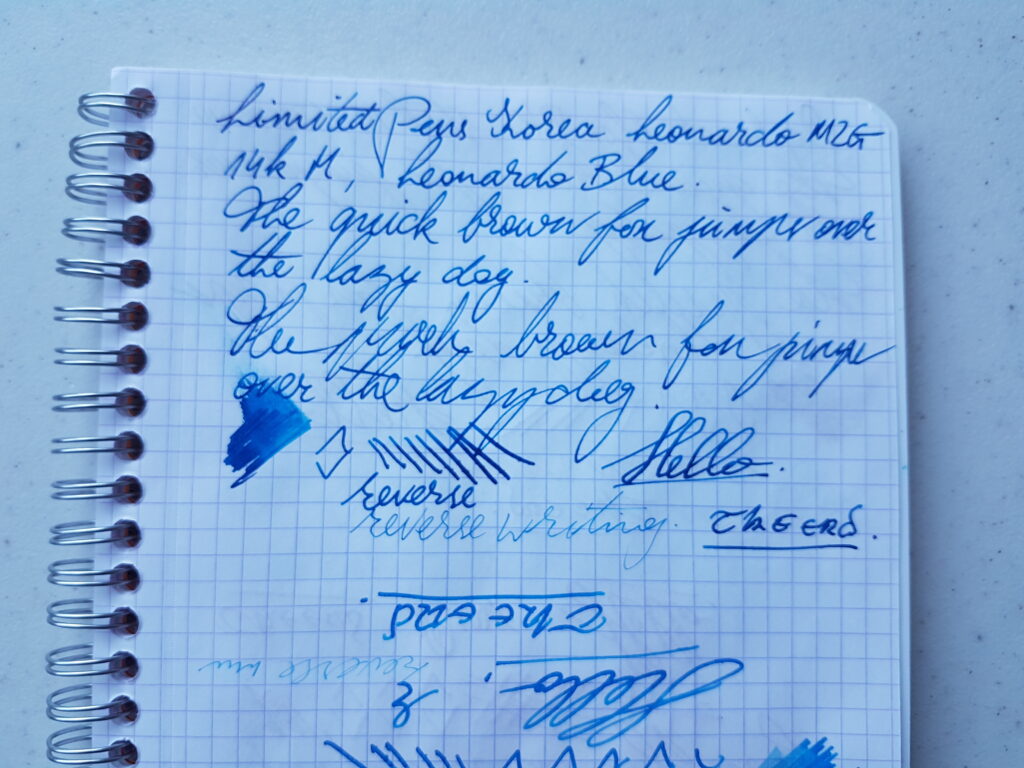 Limited Pens Korea Leonardo MZG
14k M, Leonardo Blue.
The quick brown fox jumps over
the lazy dog.
The quick brown fox jumps
over the lazy dog.
Hello.
reverse
reverse writing. The end.
The end.
Hello.
reverse